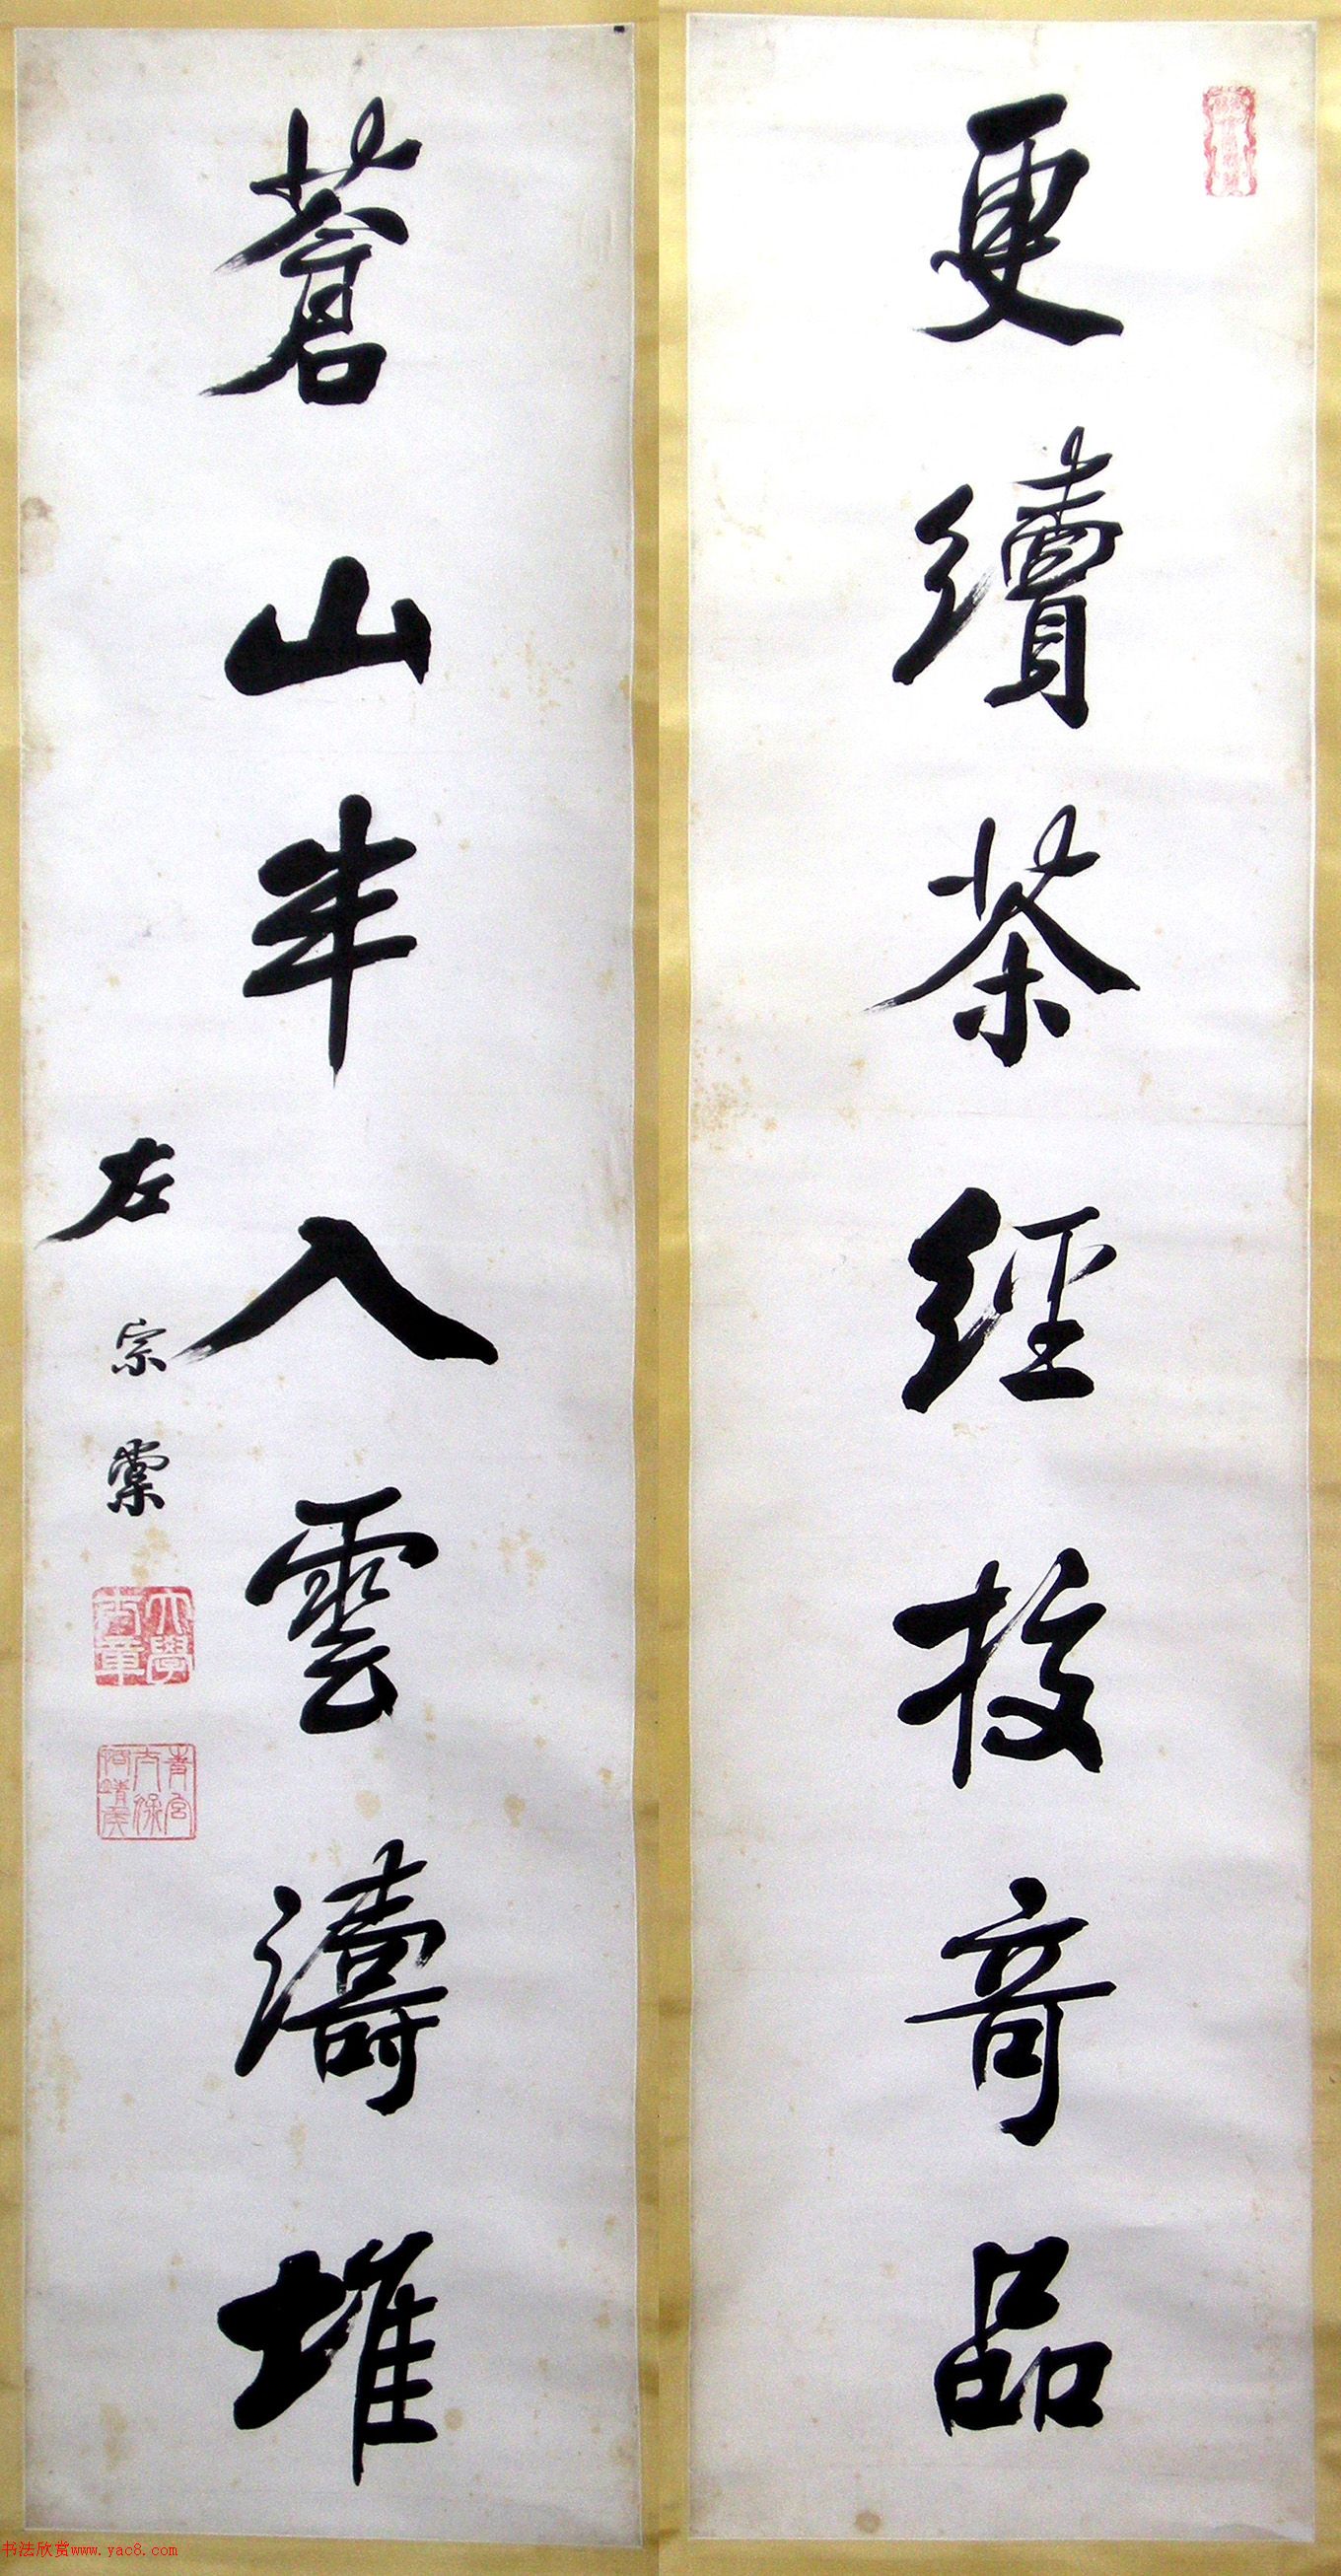 更續茶經校奇品
蒼山半入雲濤堆
左宗棠
大學士章
青宮太保恪靖侯
书法欣赏www.yac8.com